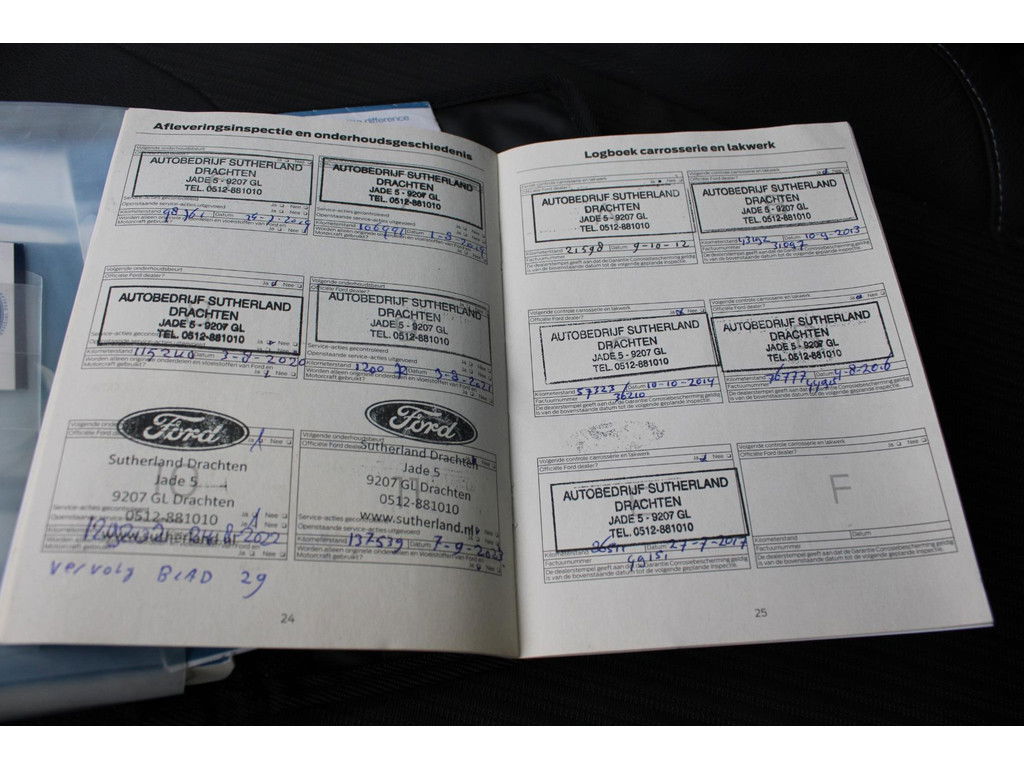 difference
Afleveringsinspectie en onderhoudsgeschiedenis
Volgende onderhoudsbeurt
AUTOBEDRIJF SUTHERLAND
DRACHTEN
JADE 5 - 9207 GL
TEL. 0512-881010
Openstaande service-acties uitgevoerd
Kilometerstand 98761 Datum
Worden alleen originele onderdelen en vloeistoffen van Ford en
Motorcraft gebruikt? Ja Nee
AUTOBEDRIJF SUTHERLAND
DRACHTEN
JADE 5 - 9207 GL
TEL. 0512-881010
Service-acties gecontroleerd
Openstaande service-acties uitgevoerd
Worden alleen originele onderdelen en vloeistoffen van Ford en
Motorcraft gebruikt? Ja Nee
Volgende onderhoudsbeurt
Officiële Ford dealer? Ja Nee
AUTOBEDRIJF SUTHERLAND
DRACHTEN
JADE 5 - 9207 GL
TEL. 0512-881010
Kilometerstand 115240 Datum 3-8-2020
Worden alleen originele onderdelen en vloeistoffen van Ford en
Motorcraft gebruikt? Ja Nee
Volgende onderhoudsbeurt
Officiële Ford dealer?
AUTOBEDRIJF SUTHERLAND
DRACHTEN
JADE 5 - 9207 GL
TEL. 0512-881010
Service-acties gecontroleerd
Openstaande service-acties uitgevoerd
Kilometerstand Datum
Worden alleen originele onderdelen en vloeistoffen van Ford en
Motorcraft gebruikt? Ja Nee
Ford
Volgende onderhoudsbeurt
Officiële Ford dealer? Nee
Sutherland Drachten
Jade 5
9207 GL Drachten
0512-881010
www.sutherland.nl
vervolg BLAD 29
Ford
Volgende onderhoudsbeurt
Officiële Ford dealer? Nee
Sutherland Drachten
Jade 5
9207 GL Drachten
0512-881010
www.sutherland.nl
Service-acties gecontroleerd
Openstaande service-acties uitgevoerd
Kilometerstand 137539 Datum 7-9-2023
Worden alleen originele onderdelen en vloeistoffen van Ford en
Motorcraft gebruikt? Ja Nee
24
Logboek carrosserie en lakwerk
Officiële Ford dealer? Ja Nee
AUTOBEDRIJF SUTHERLAND
DRACHTEN
JADE 5 - 9207 GL
TEL. 0512-881010
Kilometerstand 21598 Datum 9-10-12
Factuurnummer
De dealerstempel geeft aan dat de Garantie Corrosiebescherming geldig
is van de bovenstaande datum tot de volgende geplande inspectie.
Volgende controle carrosserie en lakwerk
Officiële Ford dealer? Ja Nee
AUTOBEDRIJF SUTHERLAND
DRACHTEN
JADE 5 - 9207 GL
TEL. 0512-881010
Kilometerstand 43192 Datum 10-9-2013
Factuurnummer 31097
De dealerstempel geeft aan dat de Garantie Corrosiebescherming geldig
is van de bovenstaande datum tot de volgende geplande inspectie.
Volgende controle carrosserie en lakwerk
Officiële Ford dealer? Ja Nee
AUTOBEDRIJF SUTHERLAND
DRACHTEN
JADE 5 - 9207 GL
TEL. 0512-881010
Kilometerstand 57323 Datum 10-10-2014
Factuurnummer 36210
De dealerstempel geeft aan dat de Garantie Corrosiebescherming geldig
is van de bovenstaande datum tot de volgende geplande inspectie.
Volgende controle carrosserie en lakwerk
Officiële Ford dealer? Ja Nee
AUTOBEDRIJF SUTHERLAND
DRACHTEN
JADE 5 - 9207 GL
TEL. 0512-881010
Kilometerstand 76777 Datum
Factuurnummer
De dealerstempel geeft aan dat de Garantie Corrosiebescherming geldig
is van de bovenstaande datum tot de volgende geplande inspectie.
Volgende controle carrosserie en lakwerk
Officiële Ford dealer? Ja Nee
AUTOBEDRIJF SUTHERLAND
DRACHTEN
JADE 5 - 9207 GL
TEL. 0512-881010
Kilometerstand Datum 27-7-2017
Factuurnummer 49151
De dealerstempel geeft aan dat de Garantie Corrosiebescherming geldig
is van de bovenstaande datum tot de volgende geplande inspectie.
Volgende controle carrosserie en lakwerk
Officiële Ford dealer? Ja Nee
F
Kilometerstand Datum
Factuurnummer
De dealerstempel geeft aan dat de Garantie Corrosiebescherming geldig
is van de bovenstaande datum tot de volgende geplande inspectie.
25